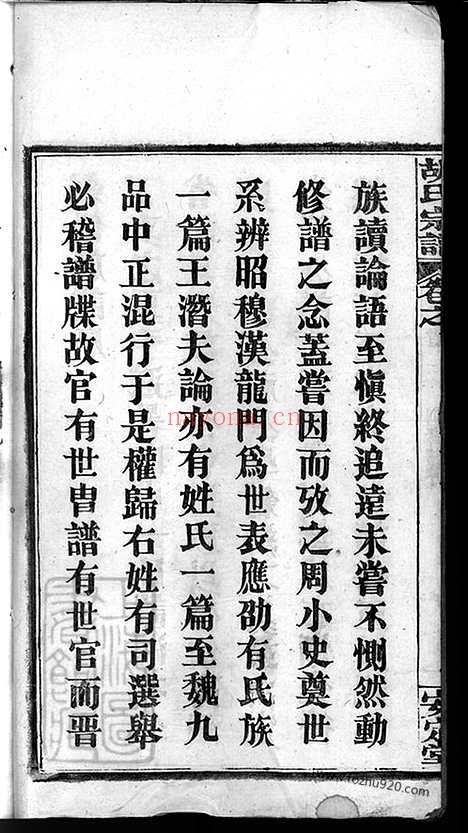 胡氏宗譜 卷之
安定堂
族讀論語至愼終追遠未嘗不惻然動
修譜之念蓋嘗因而攷之周小史奠世
系辨昭穆漢龍門爲世表應劭有氏族
一篇王潛夫論亦有姓氏一篇至魏九
品中正混行于是權歸右姓有司選舉
必稽譜牒故官有世胄譜有世官而晋
nayona.cn
www.tozhu920.com